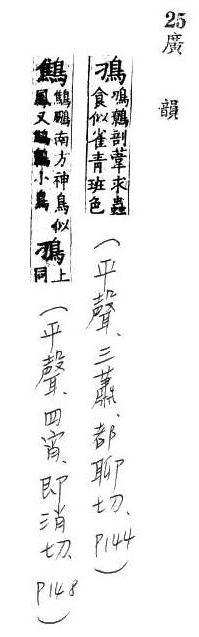 25
廣韻
鳭 鳭鷯剖葦求蟲
食似雀青班色
(平聲、三蕭、都聊切、P144)
鷦 鷦鵬南方神鳥似
鳳又鷦鷯小鳥
鳭 上同
(平聲、四宵、即消切、P148)